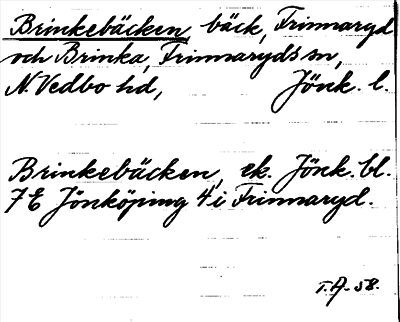 Brinkebäcken, bäck, Frinnaryd
och Brinka, Frinnaryds sn,
N. Vedbo hd, Jönk. l.
Brinkebäcken, ek. Jönk. bl.
7E Jönköping 4 i Frinnaryd.
T.A. 58.